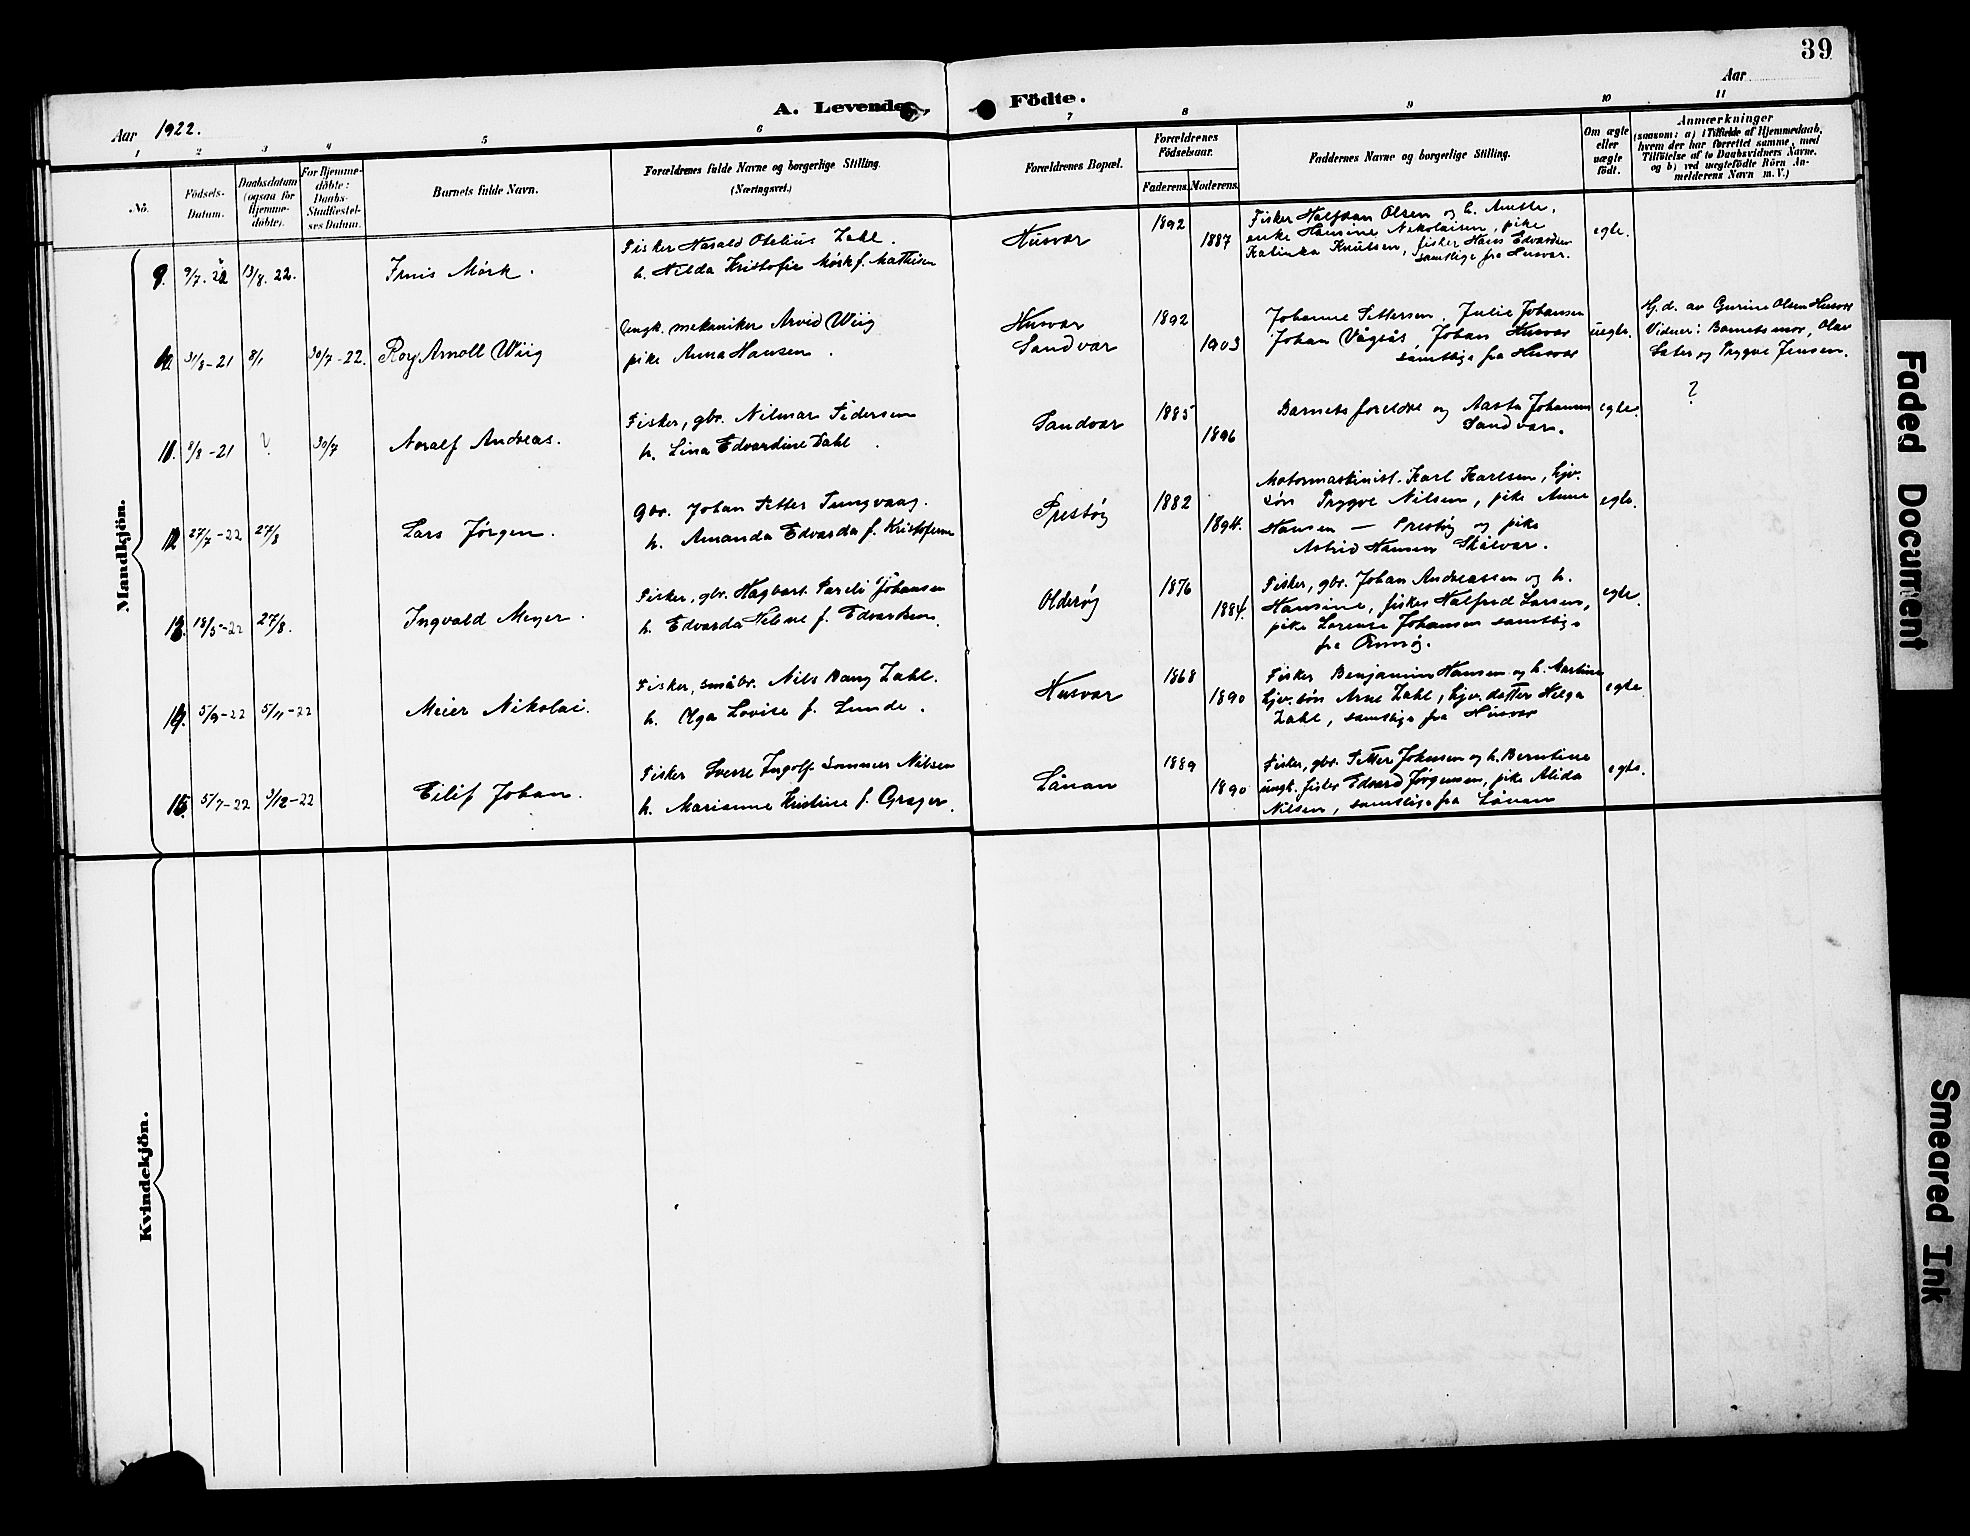 39
Aar
A. Levende Födte.
Aar 1922.
1 2 3 4 5 6 7 8 9 10 11
No.
Födsels-Datum.
Daabsdatum (ogsaa for Hjemme-döbte).
For Hjemme-döbte: Daabs-Stadfæstel-ses Datum.
Barnets fulde Navn.
Forældrenes fulde Navne og borgerlige Stilling.
(Næringsveb.)
Forældrenes Bopæl.
Forældrenes Födselsaar.
Faderens. Moderens.
Faddernes Navne og borgerlige Stilling.
Om ægte eller uægte födt.
Anmærkninger
(saasom: a) i Tilfælde af Hjemmedaab,
hvem der har forrettet samme, med
Tilföielse af to Daabsvidners Navne,
og b) ved uægtefödte Börn An-
melderens Navn m. V.)
Mandkjön.
9. 9/7. 22 13/8. 22. Mörk.
Fisker Harald Otelius Zahl.
h. Hilda Kristofie Mörk f. Mathisen
Husvær
1892
1887
Fisker Halfdan Olsen og h. Anette,
enke Hansine Nikolaisen, pike
Katinka Knutsen, fisker Hans Edvardsen
samtlige fra Husvær.
egte.
10. 31/8-21 8/1 30/7-22. Roy Arnolt Wiig
Ungk. mekaniker Arvid Wiig
pike Anna Hansen.
Husvær
Sandvær
1892
1903
Johanne Pettersen, Julie Johansen
Johan Vågsås, Johan Husvær
samtlige fra Husvær
uegte.
Hj.d. av Gurine Olsen Husvær
Vidner: Barnets mor, Olav
Sæter og Trygve Jensen.
11. 8/8-21 ? 30/7 Noralf Andreas.
Fisker, gbr. Hilmar Pedersen
h. Lina Edvardine Dahl.
Sandvær
1885
1896
Barnets foreldre og Aasta Johansen
Sandvær.
egte.
?
12. 27/7-22 27/8 Lars Jørgen.
Gbr. Johan Petter Tungvaag.
h. Amanda Edvarda f. Kristofersen
Prestøy
1882
1894.
Motormaskinist Karl Karlsen, hjv.
søn Trygve Nilsen, pike Anne
Hansen — Prestøy og pike
Astrid Hansen Skålvær.
egte.
13. 18/5-22 27/8. Ingvald Meyer.
Fisker, gbr. Hagbart Pareli Johansen
h. Edvarda Helene f. Edvardsen.
Olderøy
1876
1884.
Fisker, gbr. Johan Andreassen og h.
Hansine, fisker Halfred Larsen,
pike Lorense Johansen samtlige
fra
egte.
14. 5/9-22 5/11-22 Meier Nikolai.
Fisker, småbr. Nils Bang Zahl.
h. Olga Lovise f. Lunde.
Husvær
1868
1890
Fisker Benjamin Hansen og h. Martine
hjv. søn Arne Zahl, hjv. datter Helga
Zahl, samtlige fra Husvær
egte
15. 5/7-22 3/12-22 Eilif Johan.
Fisker Sverre Ingolf Sommer Nilsen
h. Marianne Kristine f. Græger.
Lånan
1889
1890
Fisker, gbr. Petter Johansen og h. Berntine
ungk. fisker Edvard Jørgensen, pike Alida
Nilsen, samtlige fra Lånan
egte.
Kvindekjön.
Faded Document
Smeared Ink